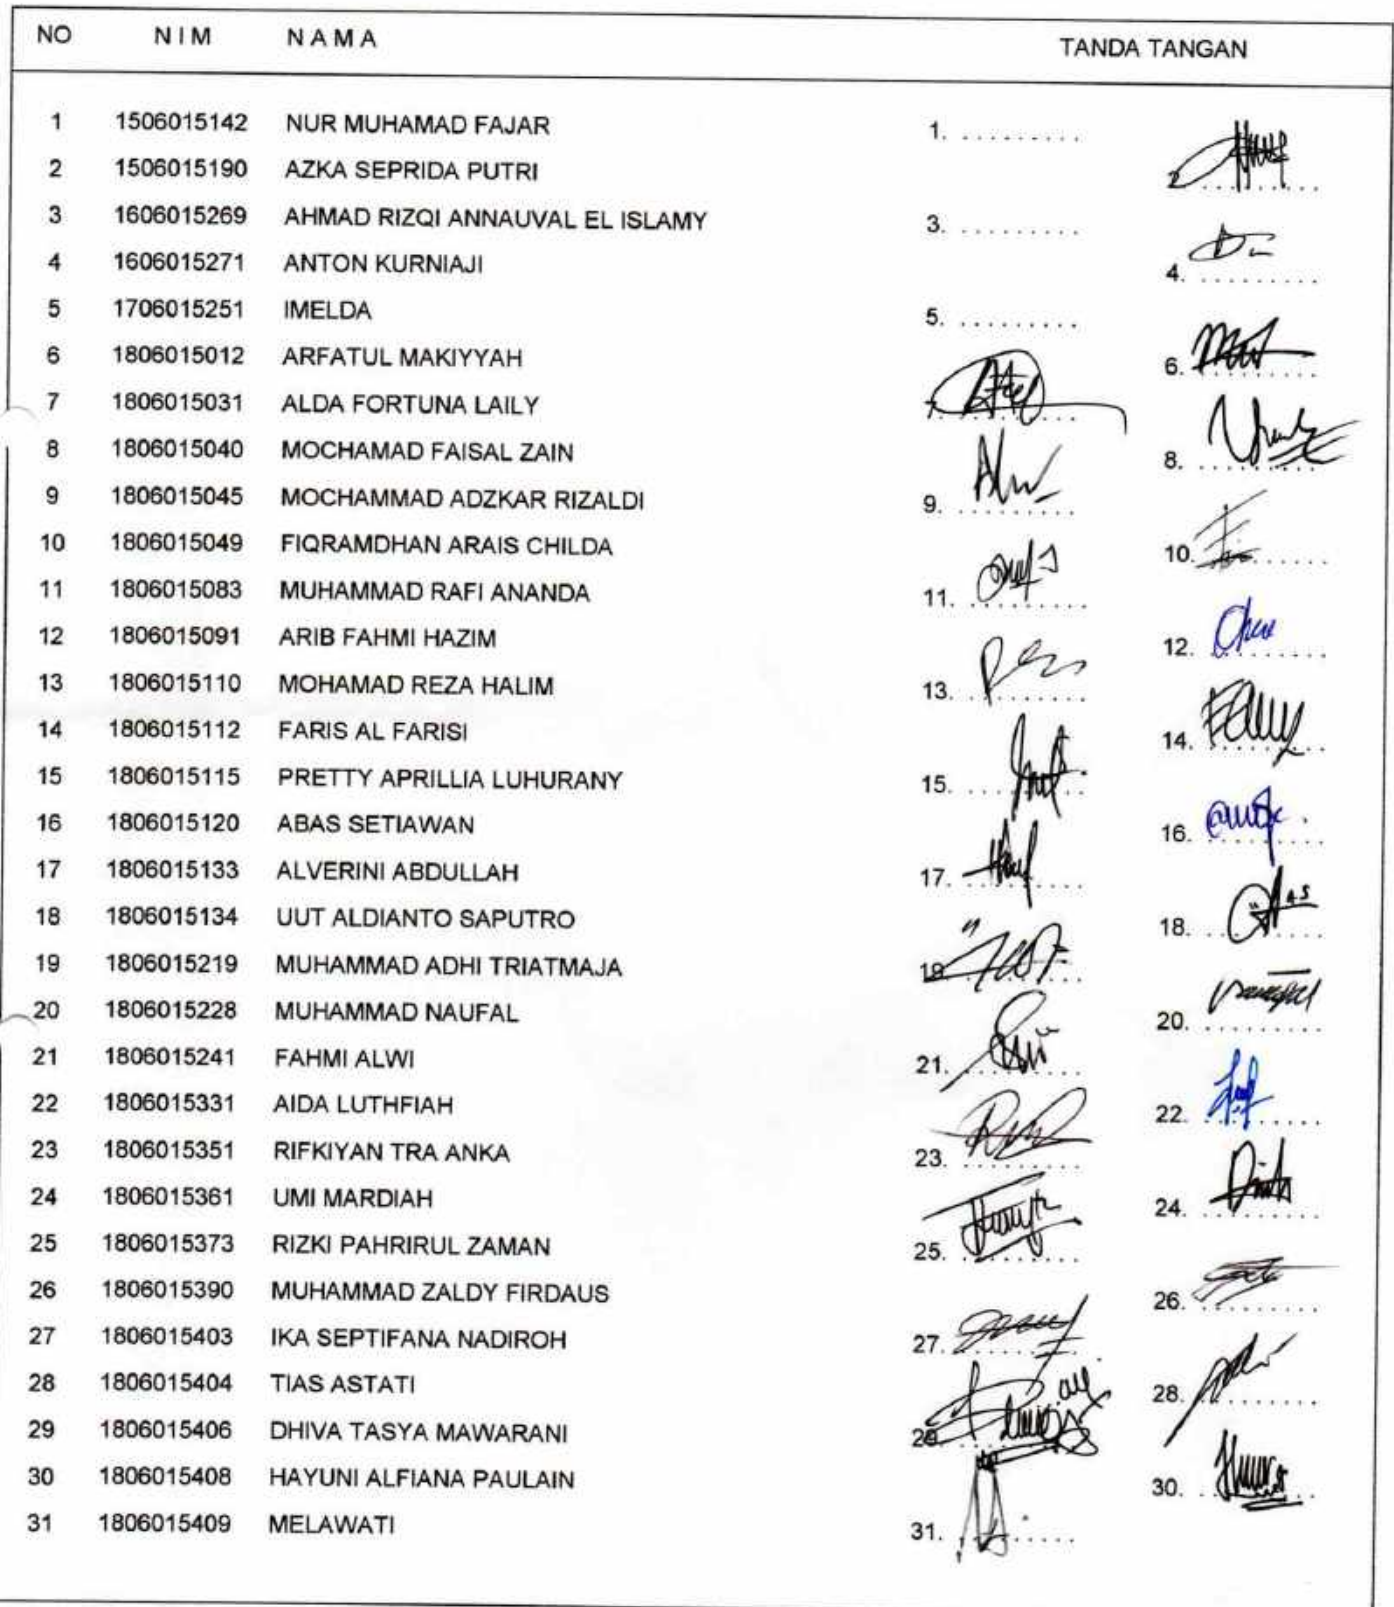 NO NIM NAMA TANDA TANGAN
1 1506015142 NUR MUHAMAD FAJAR 1. ..........
2 1506015190 AZKA SEPRIDA PUTRI 2. ..........
3 1606015269 AHMAD RIZQI ANNAUVAL EL ISLAMY 3. ..........
4 1606015271 ANTON KURNIAJI 4. ..........
5 1706015251 IMELDA 5. ..........
6 1806015012 ARFATUL MAKIYYAH 6. ..........
7 1806015031 ALDA FORTUNA LAILY 7. ..........
8 1806015040 MOCHAMAD FAISAL ZAIN 8. ..........
9 1806015045 MOCHAMMAD ADZKAR RIZALDI 9. ..........
10 1806015049 FIQRAMDHAN ARAIS CHILDA 10. ..........
11 1806015083 MUHAMMAD RAFI ANANDA 11. ..........
12 1806015091 ARIB FAHMI HAZIM 12. ..........
13 1806015110 MOHAMAD REZA HALIM 13. ..........
14 1806015112 FARIS AL FARISI 14. ..........
15 1806015115 PRETTY APRILLIA LUHURANY 15. ..........
16 1806015120 ABAS SETIAWAN 16. ..........
17 1806015133 ALVERINI ABDULLAH 17. ..........
18 1806015134 UUT ALDIANTO SAPUTRO 18. ..........
19 1806015219 MUHAMMAD ADHI TRIATMAJA 19. ..........
20 1806015228 MUHAMMAD NAUFAL 20. ..........
21 1806015241 FAHMI ALWI 21. ..........
22 1806015331 AIDA LUTHFIAH 22. ..........
23 1806015351 RIFKIYAN TRA ANKA 23. ..........
24 1806015361 UMI MARDIAH 24. ..........
25 1806015373 RIZKI PAHRIRUL ZAMAN 25. ..........
26 1806015390 MUHAMMAD ZALDY FIRDAUS 26. ..........
27 1806015403 IKA SEPTIFANA NADIROH 27. ..........
28 1806015404 TIAS ASTATI 28. ..........
29 1806015406 DHIVA TASYA MAWARANI 29. ..........
30 1806015408 HAYUNI ALFIANA PAULAIN 30. ..........
31 1806015409 MELAWATI 31. ..........